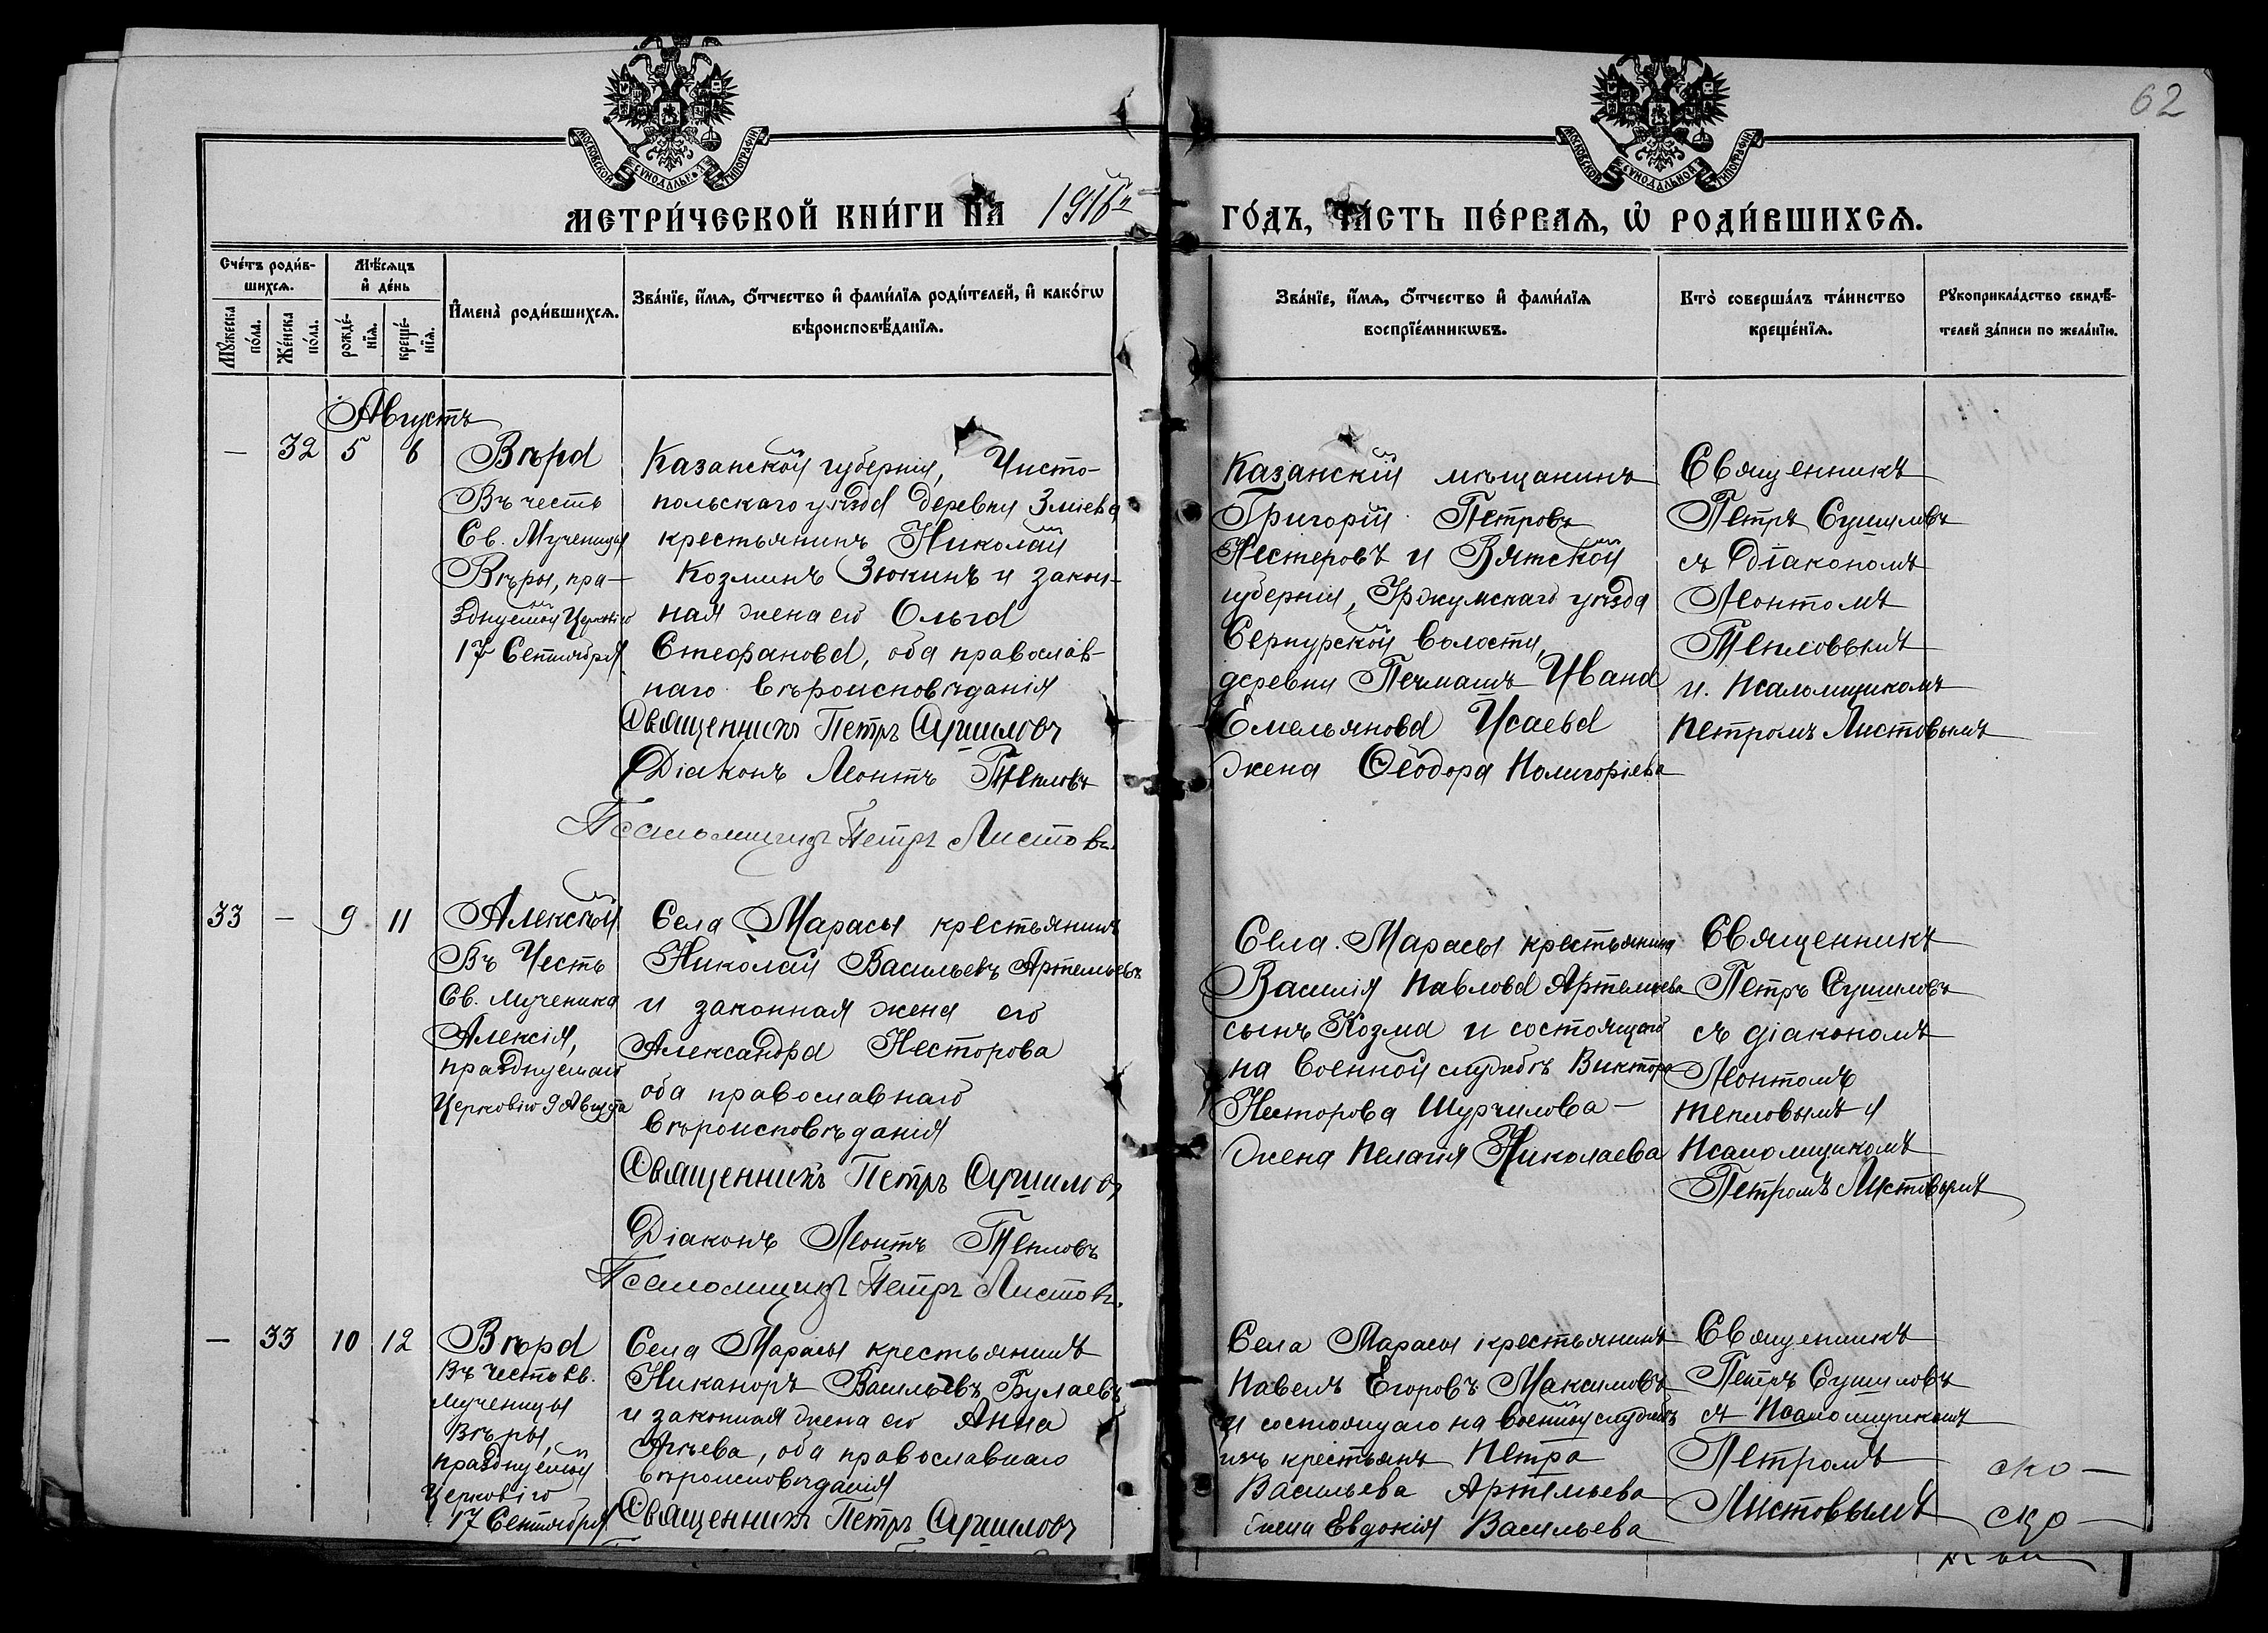 62
МОСКОВСКОЙ СѴНОДАЛЬНОЙ ТИПОГРАФІИ
МОСКОВСКОЙ СѴНОДАЛЬНОЙ ТИПОГРАФІИ
МЕТРИ́ЧЕСКОЙ КНИ́ГИ НА 1916й
ГО́ДЪ, ЧА́СТЬ ПЕ́РВАѦ, Ѡ҆ РОДИ́ВШИХСѦ.
Сче́тъ роди́в-
шихсѧ.
Мꙋ́жеска
по́ла.
Же́нска
по́ла.
Мѣ́сѧцъ
и҆ де́нь
рожде́-
нїѧ.
креще́-
нїѧ.
И҆мена̀ роди́вшихсѧ.
Зва́нїе, и҆́мѧ, ѻ҆́тчество и҆ фами́лїѧ роди́телей, и҆ како́гѡ
вѣроисповѣ́данїѧ.
Зва́нїе, и҆́мѧ, ѻ҆́тчество и҆ фами́лїѧ
воспрїе́мникѡвъ.
Кто̀ соверша́лъ та́инство
креще́нїѧ.
Рꙋкоприкла́дство свидѣ́-
телей за́писи по жела́нїю.
Августъ
— 32 5 6
Вѣра
Въ честь
Св. Мученицы
Вѣры, пра-
зднуемой Церковію
17 Сентября
Казанской губерніи, Чисто-
польскаго уѣзда деревни Зміева
крестьянинъ Николай
Козминъ Зюкинъ и закон-
ная жена его Ольга
Стефанова, оба православ-
наго вѣроисповѣданія
Священникъ Петръ Сушиловъ
Діаконъ Леонтъ Тепловъ
Псаломщикъ Петръ Листовъ.
Казанскій мѣщанинъ
Григорій Петровъ
Нестеровъ и Вятской
губерніи, Уржумскаго уѣзда
Сернурской волости,
деревни Печмашъ Ивана
Емельянова Исаева
жена Ѳеодора Полигоріева
Священникъ
Петръ Сушиловъ
съ Діакономъ
Леонтомъ
Тепловымъ
и Псаломщикомъ
Петромъ Листовымъ
33 — 9 11
Алексѣй
Въ Честь
Св. Мученика
Алексія,
празднуемаго
Церковію 9 Августа
Села Марасы крестьянинъ
Николай Васильевъ Артемьевъ
и законная жена его
Александра Несторова
оба православнаго
вѣроисповѣданія
Священникъ Петръ Сушиловъ
Діаконъ Леонтъ Тепловъ
Псаломщикъ Петръ Листовъ.
Села Марасы крестьянина
Василія Павлова Артемьева
сынъ Козма и состоящаго
на военной службѣ Виктора
Несторова Шурчилова —
жена Пелагія Николаева
Священникъ
Петръ Сушиловъ
съ діакономъ
Леонтомъ
Тепловымъ и
Псаломщикомъ
Петромъ Листовымъ
— 33 10 12
Вѣра
Въ Честь Св.
Мученицы
Вѣры,
празднуемой
Церковію
17 Сентября
Села Марасы крестьянинъ
Никаноръ Васильевъ Булаевъ
и законная жена его Анна
Агѣева, оба православнаго
вѣроисповѣданія
Священникъ Петръ Сушиловъ
Села Марасы крестьянинъ
Павелъ Егоровъ Максимовъ
и состоящаго на военной службѣ
изъ крестьянъ Петра
Васильева Артемьева
жена Евдокія Васильева
Священникъ
Петръ Сушиловъ
съ Псаломщикомъ
Петромъ
Листовымъ